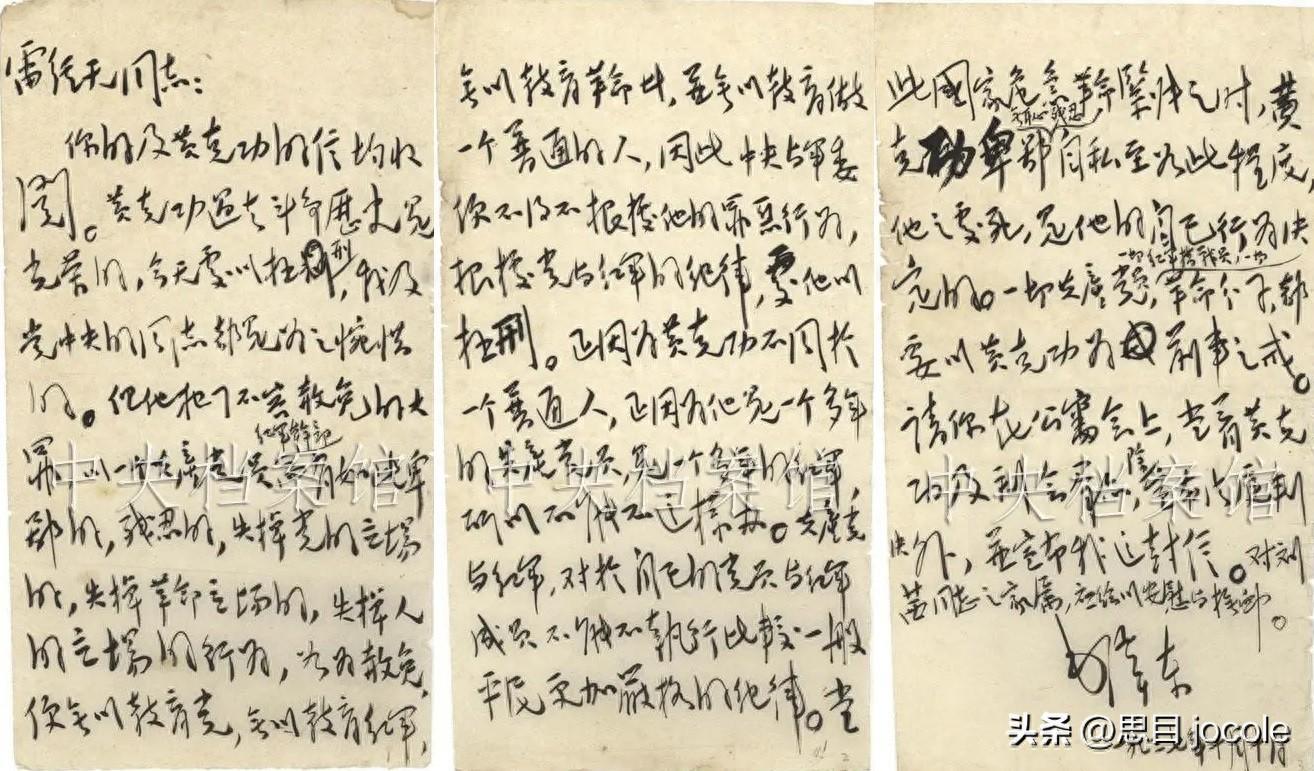 雷经天同志：
你的及黄克功的信均收
阅。黄克功过去斗争历史是
光荣的，今天处以极刑，我及
党中央的同志都是为之惋惜
的。但他犯了不容赦免的大
罪，以一个共产党员红军干部而有如此卑
鄙的，残忍的，失掉党的立场
的，失掉革命立场的，失掉人
的立场的行为，如为赦免，
便无以教育党，无以教育红军，
无以教育革命者，并无以教育做
一个普通的人，因此中央与军委
便不得不根据他的罪恶行为，
根据党与红军的纪律，处他以
极刑。正因为黄克功不同于
一个普通人，正因为他是一个多年
的共产党员，是一个多年的红军，
所以不能不这样办。共产党
与红军，对于自己的党员与红军
成员不能不执行比较一般
平民更加严格的纪律。当
此国家危急革命紧张之时，黄
克功卑鄙无耻残忍自私至如此程度，
他之处死，是他的自己行为决
定的。一切共产党员，一切红军指战员，一切革命分子，都
要以黄克功为前车之戒。
请你在公审会上，当着黄克
功及到会群众，除宣布法庭判
决外，并宣布我这封信。对刘
茜同志之家属，应给以安慰与抚恤。
毛泽东
一九三七年十月十日
中央档案馆
中央档案馆
中央档案馆
头条 @思目jocole